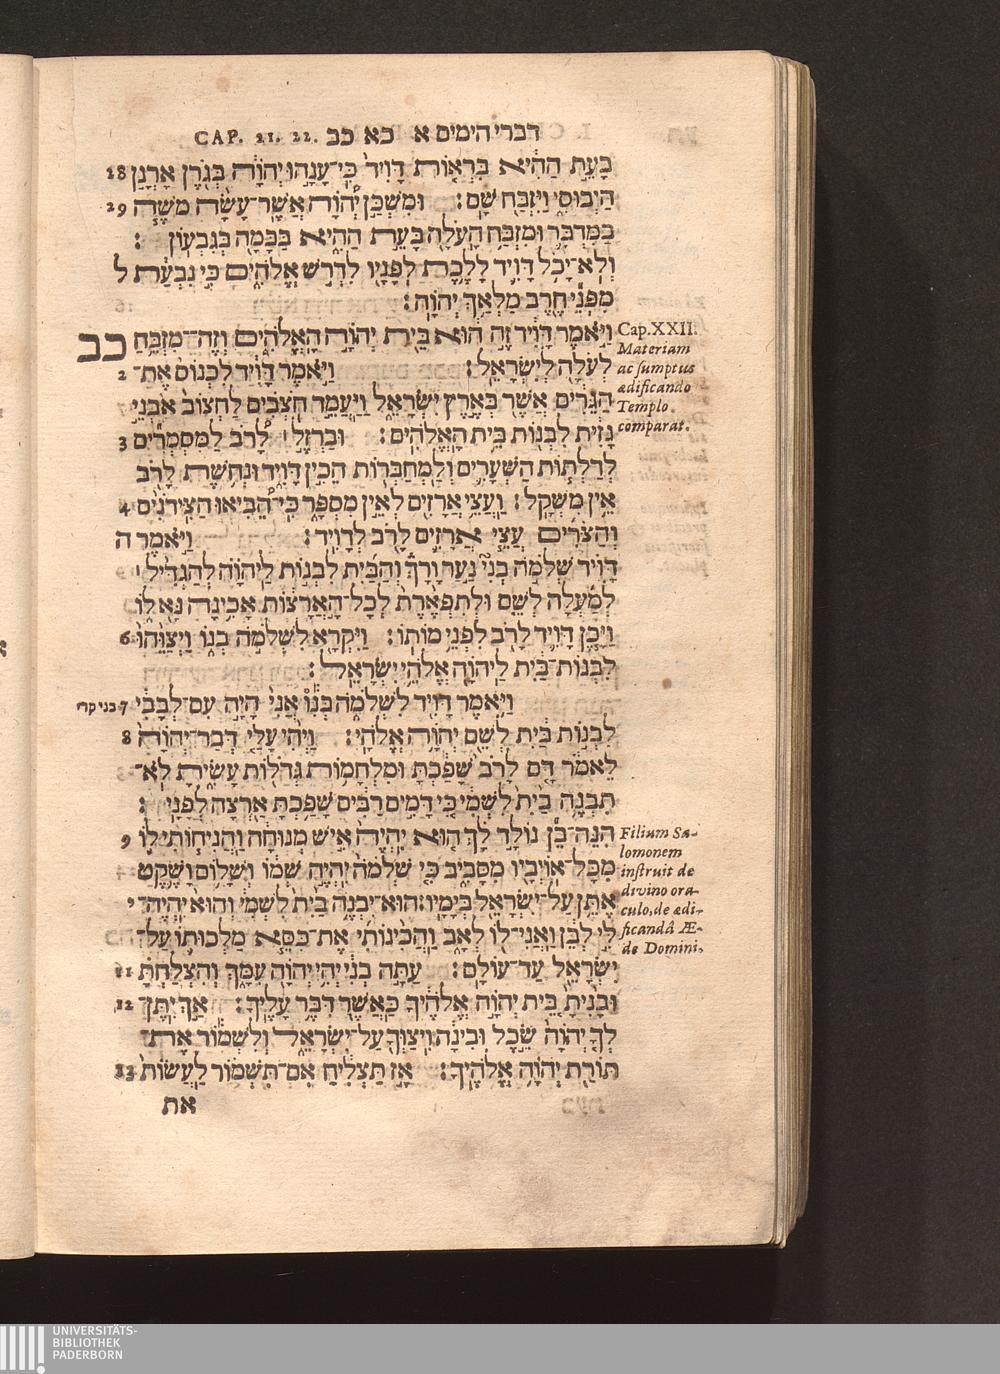 דברי הימים א כא כב CAP. 21. 22.
בָּעֵת הַהִיא בִּרְאוֹת דָּוִיד כִּי־עָנָהוּ יְהוָה בְּגֹרֶן אָרְנָן 18
הַיְבוּסִי וַיִּזְבַּח שָׁם׃ וּמִשְׁכַּן יְהוָה אֲשֶׁר־עָשָׂה מֹשֶׁה 29
בַמִּדְבָּר וּמִזְבַּח הָעֹלָה בָּעֵת הַהִיא בַּבָּמָה בְּגִבְעוֹן׃
וְלֹא־יָכֹל דָּוִיד לָלֶכֶת לְפָנָיו לִדְרֹשׁ אֱלֹהִים כִּי נִבְעַת ל
מִפְּנֵי חֶרֶב מַלְאַךְ יְהוָה׃
כב וַיֹּאמֶר דָּוִיד זֶה הוּא בֵּית יְהוָה הָאֱלֹהִים וְזֶה־מִּזְבֵּחַ
לְעֹלָה לְיִשְׂרָאֵל׃ וַיֹּאמֶר דָּוִיד לִכְנוֹס אֶת־ 2
הַגֵּרִים אֲשֶׁר בְּאֶרֶץ יִשְׂרָאֵל וַיַּעֲמֵד חֹצְבִים לַחְצוֹב אַבְנֵי
גָזִית לִבְנוֹת בֵּית הָאֱלֹהִים׃ וּבַרְזֶל׀ לָרֹב לַמִּסְמְרִים 3
לְדַלְתוֹת הַשְּׁעָרִים וְלַמְחַבְּרוֹת הֵכִין דָּוִיד וּנְחֹשֶׁת לָרֹב
אֵין מִשְׁקָל׃ וַעֲצֵי אֲרָזִים לְאֵין מִסְפָּר כִּי־הֵבִיאוּ הַצִּידֹנִים 4
וְהַצֹּרִים עֲצֵי אֲרָזִים לָרֹב לְדָוִיד׃ וַיֹּאמֶר ה
דָּוִיד שְׁלֹמֹה בְנִי נַעַר וָרָךְ וְהַבַּיִת לִבְנוֹת לַיהוָה לְהַגְדִּיל׀
לְמַעְלָה לְשֵׁם וּלְתִפְאֶרֶת לְכָל־הָאֲרָצוֹת אָכִינָה נָּא לוֹ
וַיָּכֶן דָּוִיד לָרֹב לִפְנֵי מוֹתוֹ׃ וַיִּקְרָא לִשְׁלֹמֹה בְנוֹ וַיְצַוֵּהוּ 6
לִבְנוֹת־בַּיִת לַיהוָה אֱלֹהֵי יִשְׂרָאֵל׃
וַיֹּאמֶר דָּוִיד לִשְׁלֹמֹה בְּנוֹ אֲנִי הָיָה עִם־לְבָבִי 7 בני קרי
לִבְנוֹת בַּיִת לְשֵׁם יְהוָה אֱלֹהָי׃ וַיְהִי עָלַי דְּבַר־יְהוָה 8
לֵאמֹר דָּם לָרֹב שָׁפַכְתָּ וּמִלְחָמוֹת גְּדֹלוֹת עָשִׂיתָ לֹא־
תִבְנֶה בַיִת לִשְׁמִי כִּי דָּמִים רַבִּים שָׁפַכְתָּ אַרְצָה לְפָנָי׃
הִנֵּה־בֵן נוֹלָד לָךְ הוּא יִהְיֶה אִישׁ מְנוּחָה וַהֲנִיחוֹתִי לוֹ 9
מִכָּל־אוֹיְבָיו מִסָּבִיב כִּי שְׁלֹמֹה יִהְיֶה שְׁמוֹ וְשָׁלוֹם וָשֶׁקֶט
אֶתֵּן עַל־יִשְׂרָאֵל בְּיָמָיו׃ הוּא־יִבְנֶה בַיִת לִשְׁמִי וְהוּא יִהְיֶה־ י
לִּי לְבֵן וַאֲנִי־לוֹ לְאָב וַהֲכִינוֹתִי אֶת־כִּסֵּא מַלְכוּתוֹ עַל־
יִשְׂרָאֵל עַד־עוֹלָם׃ עַתָּה בְנִי יְהִי יְהוָה עִמָּךְ וְהִצְלַחְתָּ 11
וּבָנִיתָ בֵּית יְהוָה אֱלֹהֶיךָ כַּאֲשֶׁר דִּבֶּר עָלֶיךָ׃ אַךְ יִתֶּן־ 12
לְךָ יְהוָה שֵׂכֶל וּבִינָה וִיצַוְּךָ עַל־יִשְׂרָאֵל וְלִשְׁמוֹר אֶת־
תּוֹרַת יְהוָה אֱלֹהֶיךָ׃ אָז תַּצְלִיחַ אִם־תִּשְׁמוֹר לַעֲשׂוֹת 13
את
Cap. XXII.
Materiam
ac sumptus
ædificando
Templo
comparat.
Filium Sa-
lomonem
instruit de
divino ora-
culo, de ædi-
ficandâ Æ-
de Domini.
UNIVERSITÄTS-
BIBLIOTHEK
PADERBORN